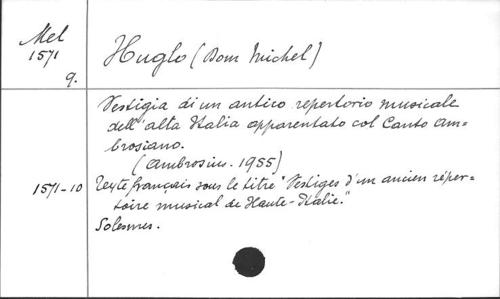 Mel
1571
9.
Huglo (Dom Michel)
Vestigia di un antico repertorio musicale
dell'alta Italia apparentato col Canto Am=
brosiano.
(Ambrosius. 1955)
1571-10 Texte français sous le titre "Vestiges d'un ancien réper-
toire musical de Haute-Italie."
Solesmes.